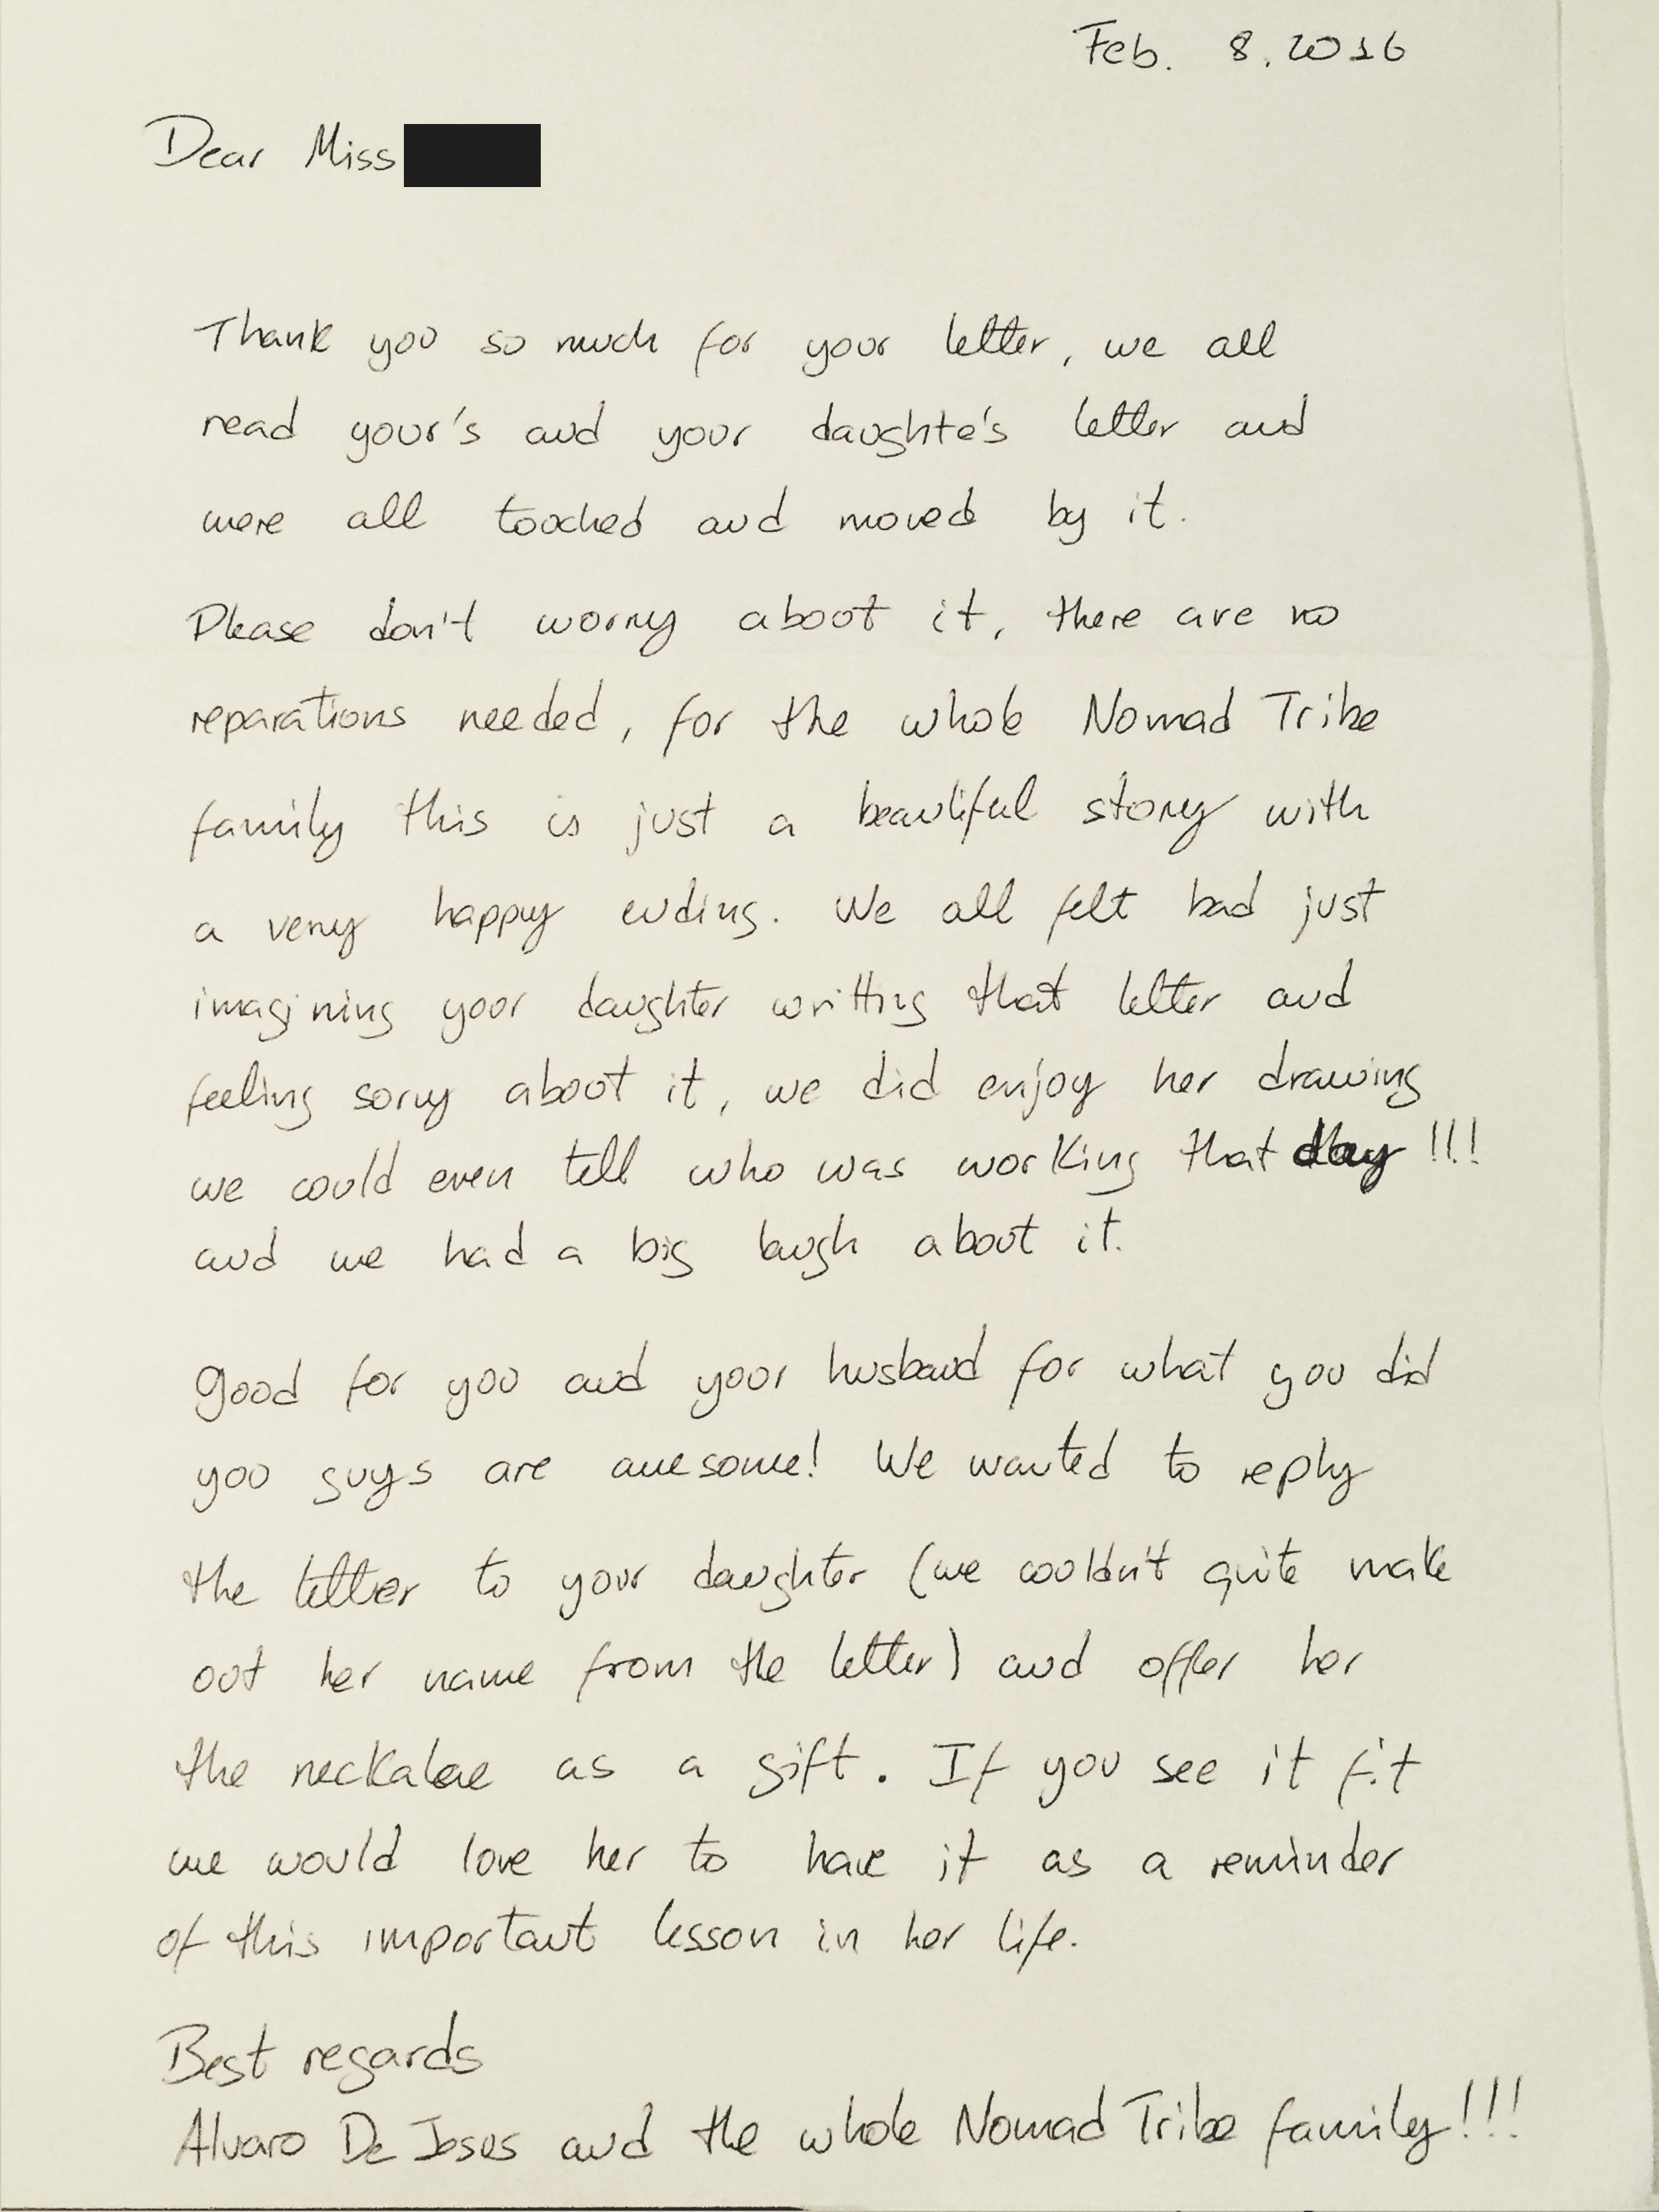 Feb. 8. 2016
Dear Miss
Thank you so much for your letter, we all
read your's and your daughte's letter and
were all touched and moved by it.
Please don't worry about it, there are no
reparations needed, for the whole Nomad Tribe
family this is just a beautiful story with
a very happy ending. We all felt bad just
imagining your daughter writting that letter and
feeling sorry about it, we did enjoy her drawing
we could even tell who was working that day !!!
and we had a big laugh about it.
Good for you and your husband for what you did
you guys are awesome! We wanted to reply
the letter to your daughter (we couldn't quite make
out her name from the letter) and offer her
the neckalace as a gift. If you see it fit
we would love her to have it as a reminder
of this important lesson in her life.
Best regards
Alvaro De Jesus and the whole Nomad Tribe family!!!